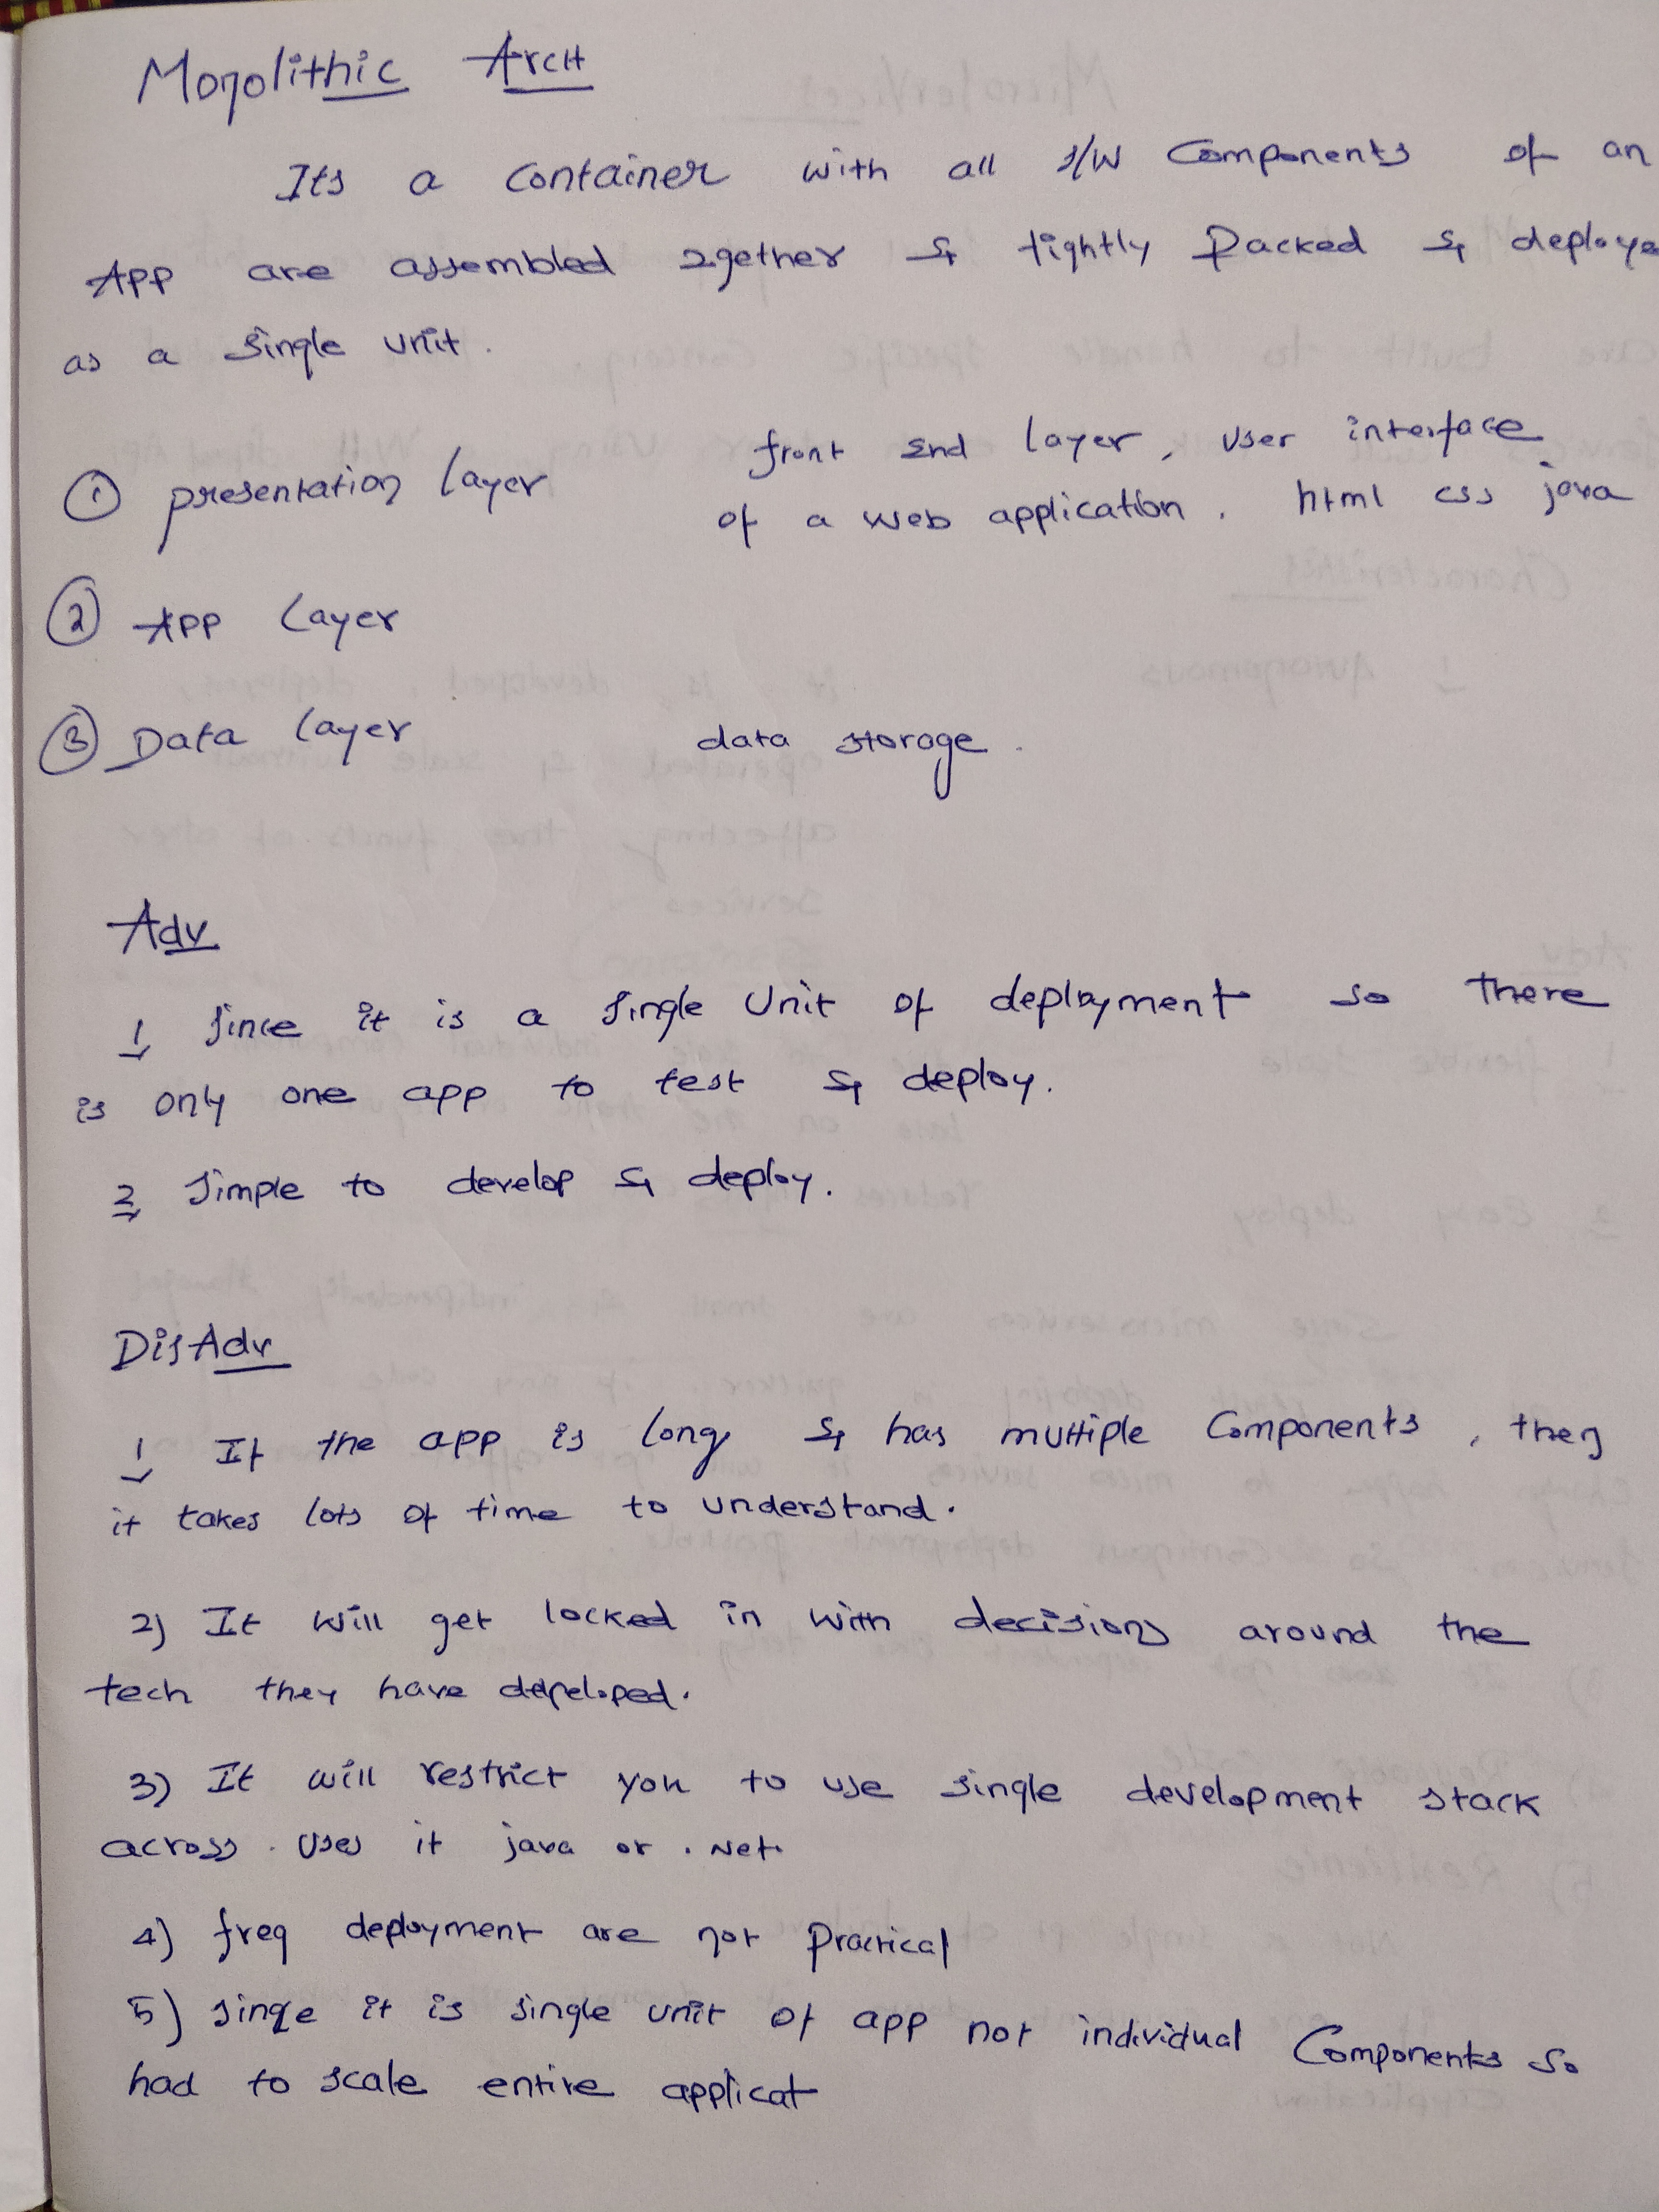 Monolithic Arch
Its a container with all s/w Components of an
App are assembled 2gether & tightly Packed & deploye
as a single unit.
① presentation layer front end layer, user interface
of a web application. html css java
② App Layer
③ Data layer data storage.
Adv
1 since it is a single Unit of deployment so there
is only one app to test & deploy.
2 simple to develop & deploy.
DisAdv
1 If the app is long & has multiple Components, then
it takes lots of time to understand.
2) It will get locked in with decisions around the
tech they have developed.
3) It will restrict you to use single development stack
across. Uses it java or .Net.
4) freq deployment are not Practical
5) since it is single unit of app not individual Components so
had to scale entire applicat